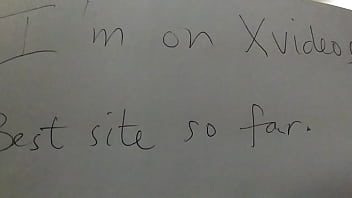 I'm on Xvideos
Best site so far.